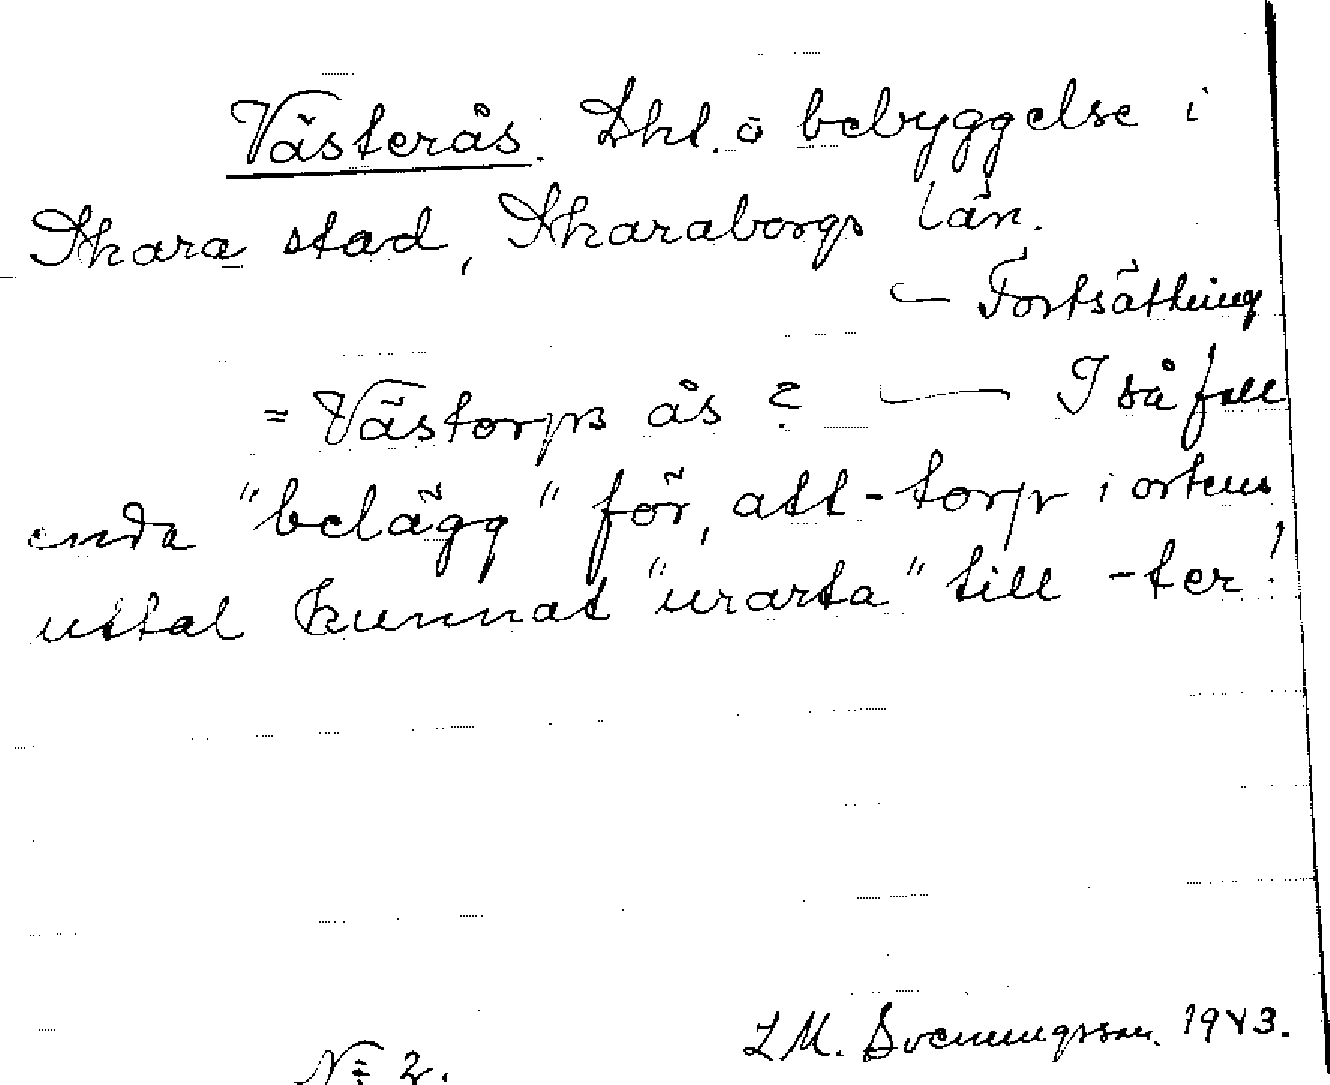 Västerås. Skl. o bebyggelse i
Skara stad, Skaraborgs län.
— Fortsättning
= Västorps ås? — I så fall
enda "belägg" för, att -torp i ortens
uttal kunnat "urarta" till -ter!
L M. Svenningsson. 1943.
No 2.